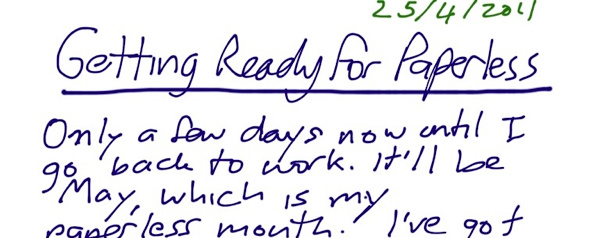 25/4/2011
Getting Ready for Paperless
Only a few days now until I
go back to work. It'll be
May, which is my
paperless month. I've got